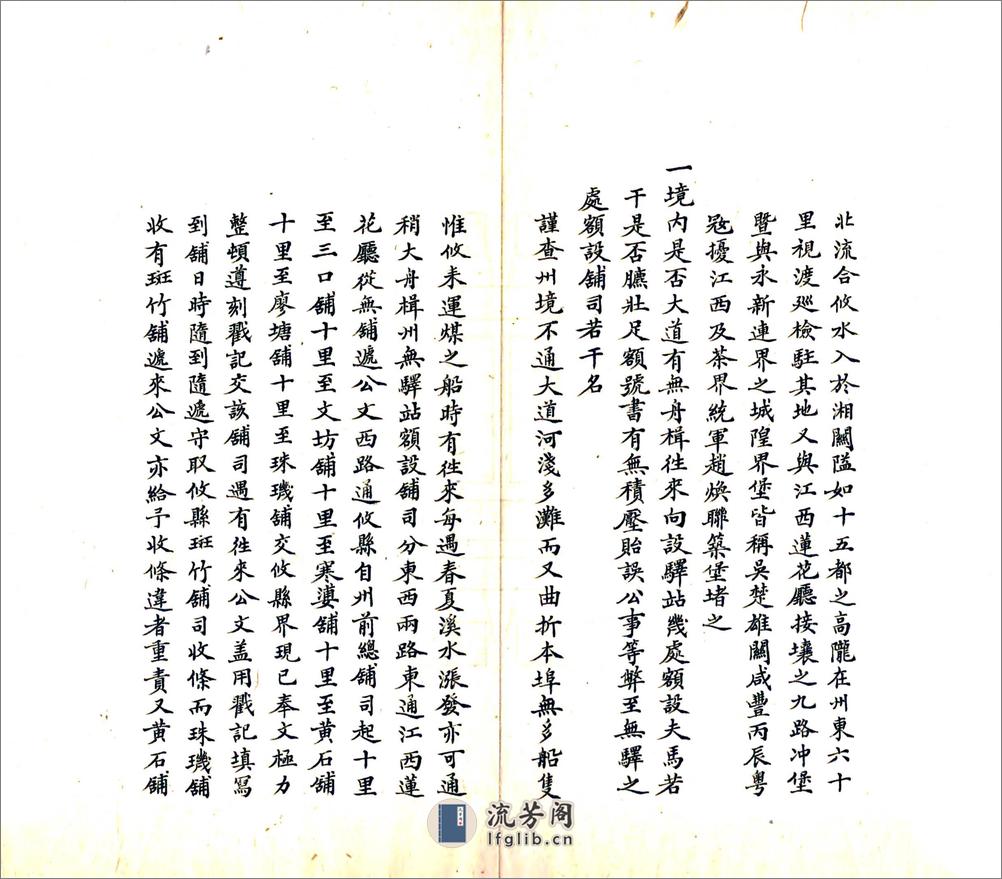 北流合攸水入於湘關隘如十五都之高隴在州東六十
里視渡廵檢駐其地又與江西蓮花廳接壤之九路冲堡
暨與永新連界之城隍界堡皆稱吳楚雄關咸豐丙辰粤
冦擾江西及茶界統軍趙煥聯築堡堵之
一境内是否大道有無舟楫徃來向設驛站幾處額設夫馬若
干是否臕壯足額號書有無積壓貽誤公事等弊至無驛之
處額設舖司若干名
謹查州境不通大道河淺多灘而又曲折本埠無多船隻
惟攸耒運煤之船時有徃來每遇春夏溪水漲發亦可通
稍大舟楫州無驛站額設舖司分東西兩路東通江西蓮
花廳從無舖遞公文西路通攸縣自州前總舖司起十里
至三口舖十里至文坊舖十里至寒婆舖十里至黄石舖
十里至廖塘舖十里至珠璣舖交攸縣界現已奉文極力
整頓遵刻戳記交該舖司遇有徃來公文盖用戳記填寫
到舖日時隨到隨遞守取攸縣斑竹舖司收條而珠璣舖
收有斑竹舖遞來公文亦給予收條違者重責又黄石舖
流芳阁
lfglib.cn